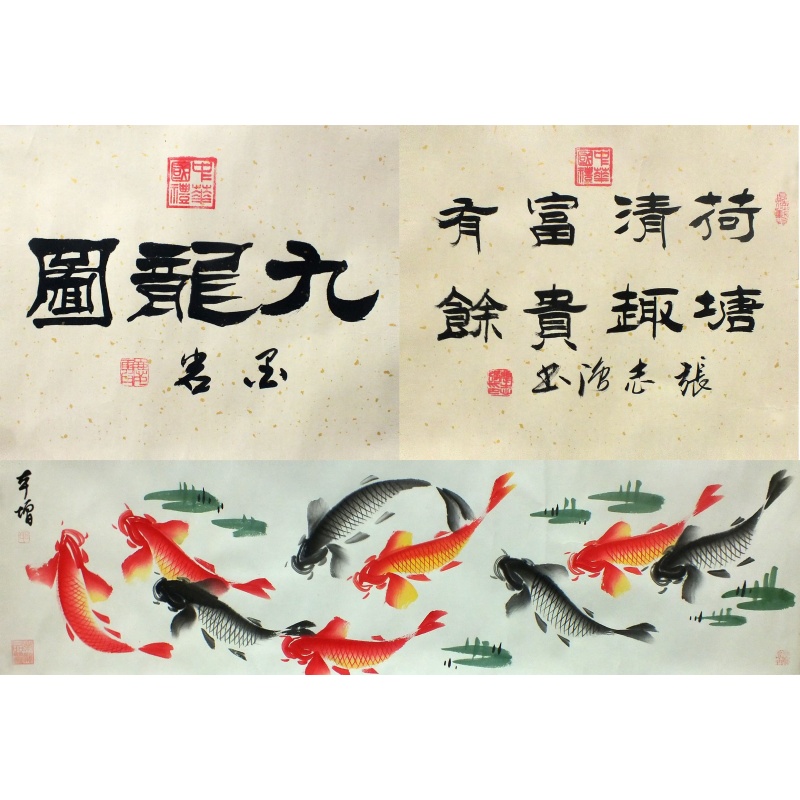 中華國禮
九龍圖
中華國禮
荷塘
清趣
富貴
有餘
張志 書